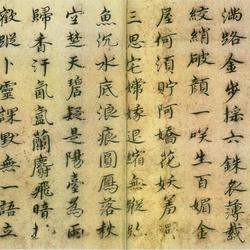 滿路金步採六銖衣薄裁
絞綃破顏一咲生百媚金
屋何須貯阿嬌花妖羞
三思宅嫦娥退縮無蹤
魚沉水底浪痕圓鴈落秋
空楚天碧疑是陽臺為雨
歸香汗氤氳蘭麝飛暗
蹤卜靈課默無一語立